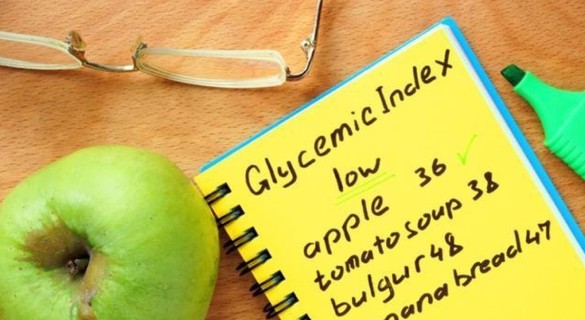 Glycemic Index
low
apple 36 ✓
tomato soup 38
bulgur 48
bread 47